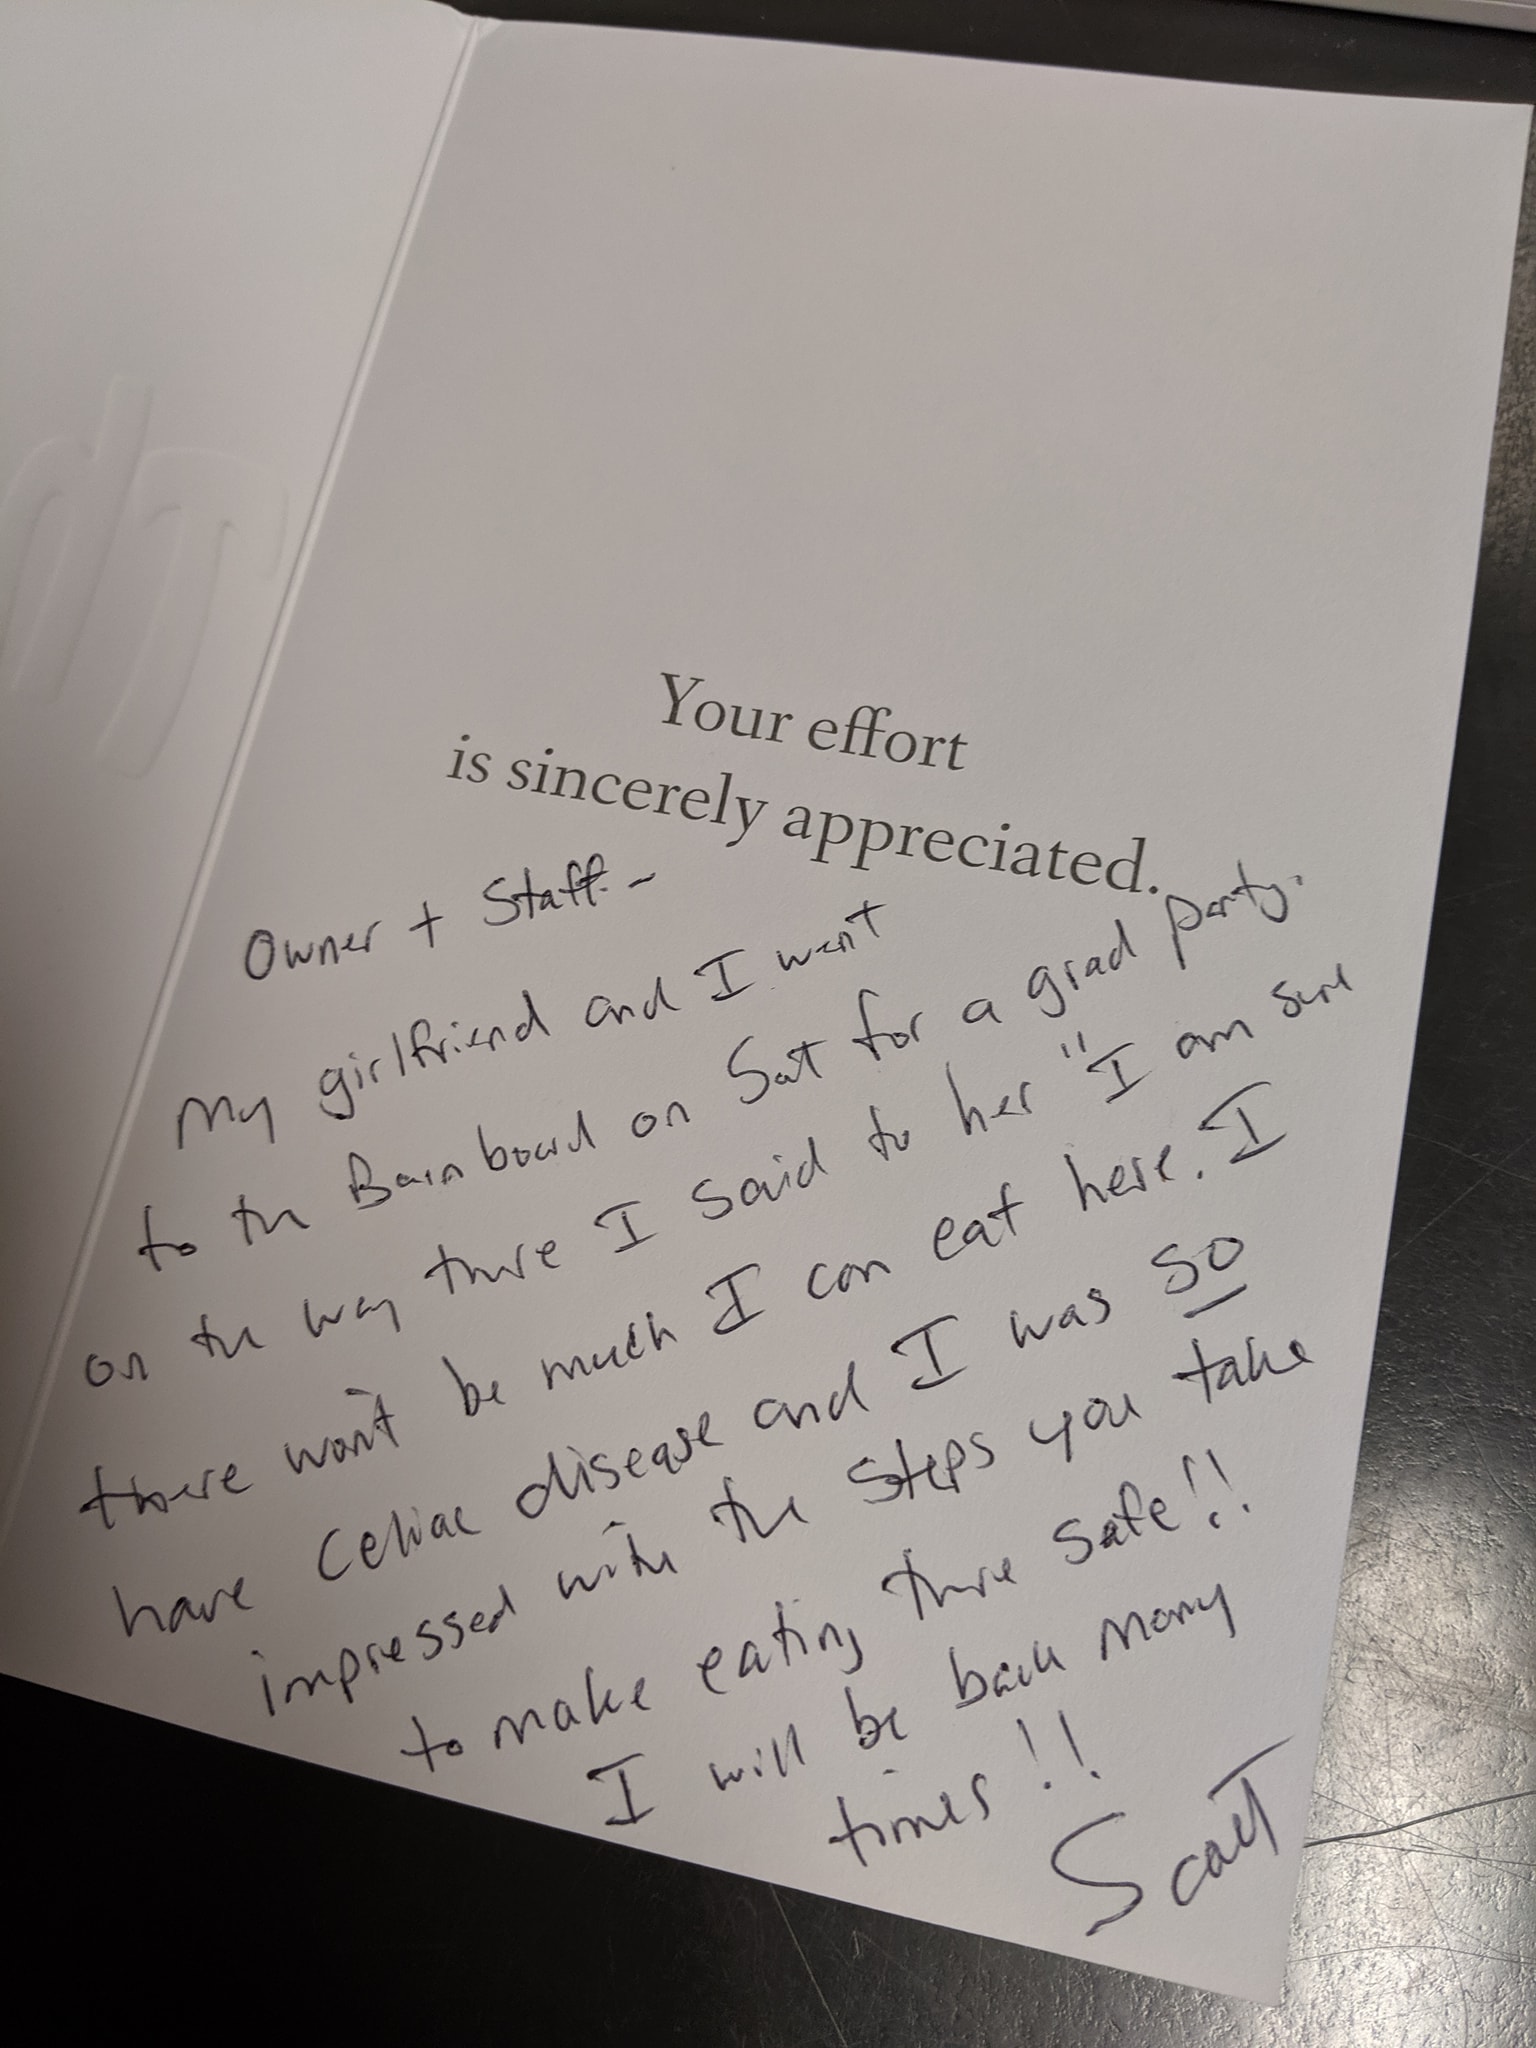 Your effort
is sincerely appreciated.
Owner + Staff -
My girlfriend and I went
to the Barnboard on Sat for a grad party.
on the way there I said to her "I am sure
there won't be much I can eat here. I
have Celiac disease and I was so
impressed with the steps you take
to make eating there safe!!
I will be back many
times!!
Scott